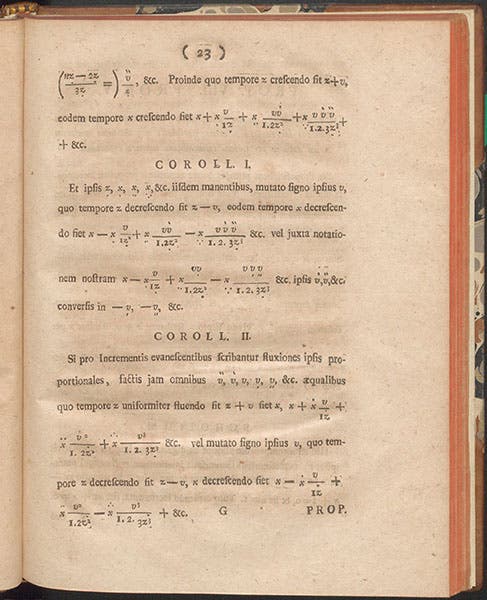 ( 23 )
(nz̤ − 2z̤ / 3z̤ =) v̈ / z̤, &c. Proinde quo tempore z crescendo fit z + v,
eodem tempore x crescendo fiet x + x̣ v/1ẓ + x̤ vv̇/1.2ẓ² + x⃛ vv̇v̈/1.2.3ẓ³ +
+ &c.
COROLL. I.
Et ipsis z, x, x̣, x̤, &c. iisdem manentibus, mutato signo ipsius v,
quo tempore z decrescendo fit z − v, eodem tempore x decrescen-
do fiet x − x̣ v/1ẓ + x̤ vv̇/1.2ẓ² − x⃛ vv̇v̈/1.2.3ẓ³ &c. vel juxta notatio-
nem nostram x − x̣ v/1ẓ + x̤ vv̩/1.2ẓ² − x⃛ vv̩v̩/1.2.3ẓ³ &c. ipsis v̇, v̈, &c.
conversis in − v̩, − v̩, &c.
COROLL. II.
Si pro Incrementis evanescentibus scribantur fluxiones ipsis pro-
portionales, factis jam omnibus v̈, v̇, v, v̩, v̩, &c. æqualibus
quo tempore z uniformiter fluendo fit z + v fiet x, x + ẋ v/1ż +
ẍ v²/1.2ż² + x⃛ v³/1.2.3ż³ &c. vel mutato signo ipsius v, quo tem-
pore z decrescendo fit z − v, x decrescendo fiet x − ẋ v/1ż +
ẍ v²/1.2ż² − x⃛ v³/1.2.3ż³ + &c. G PROP.